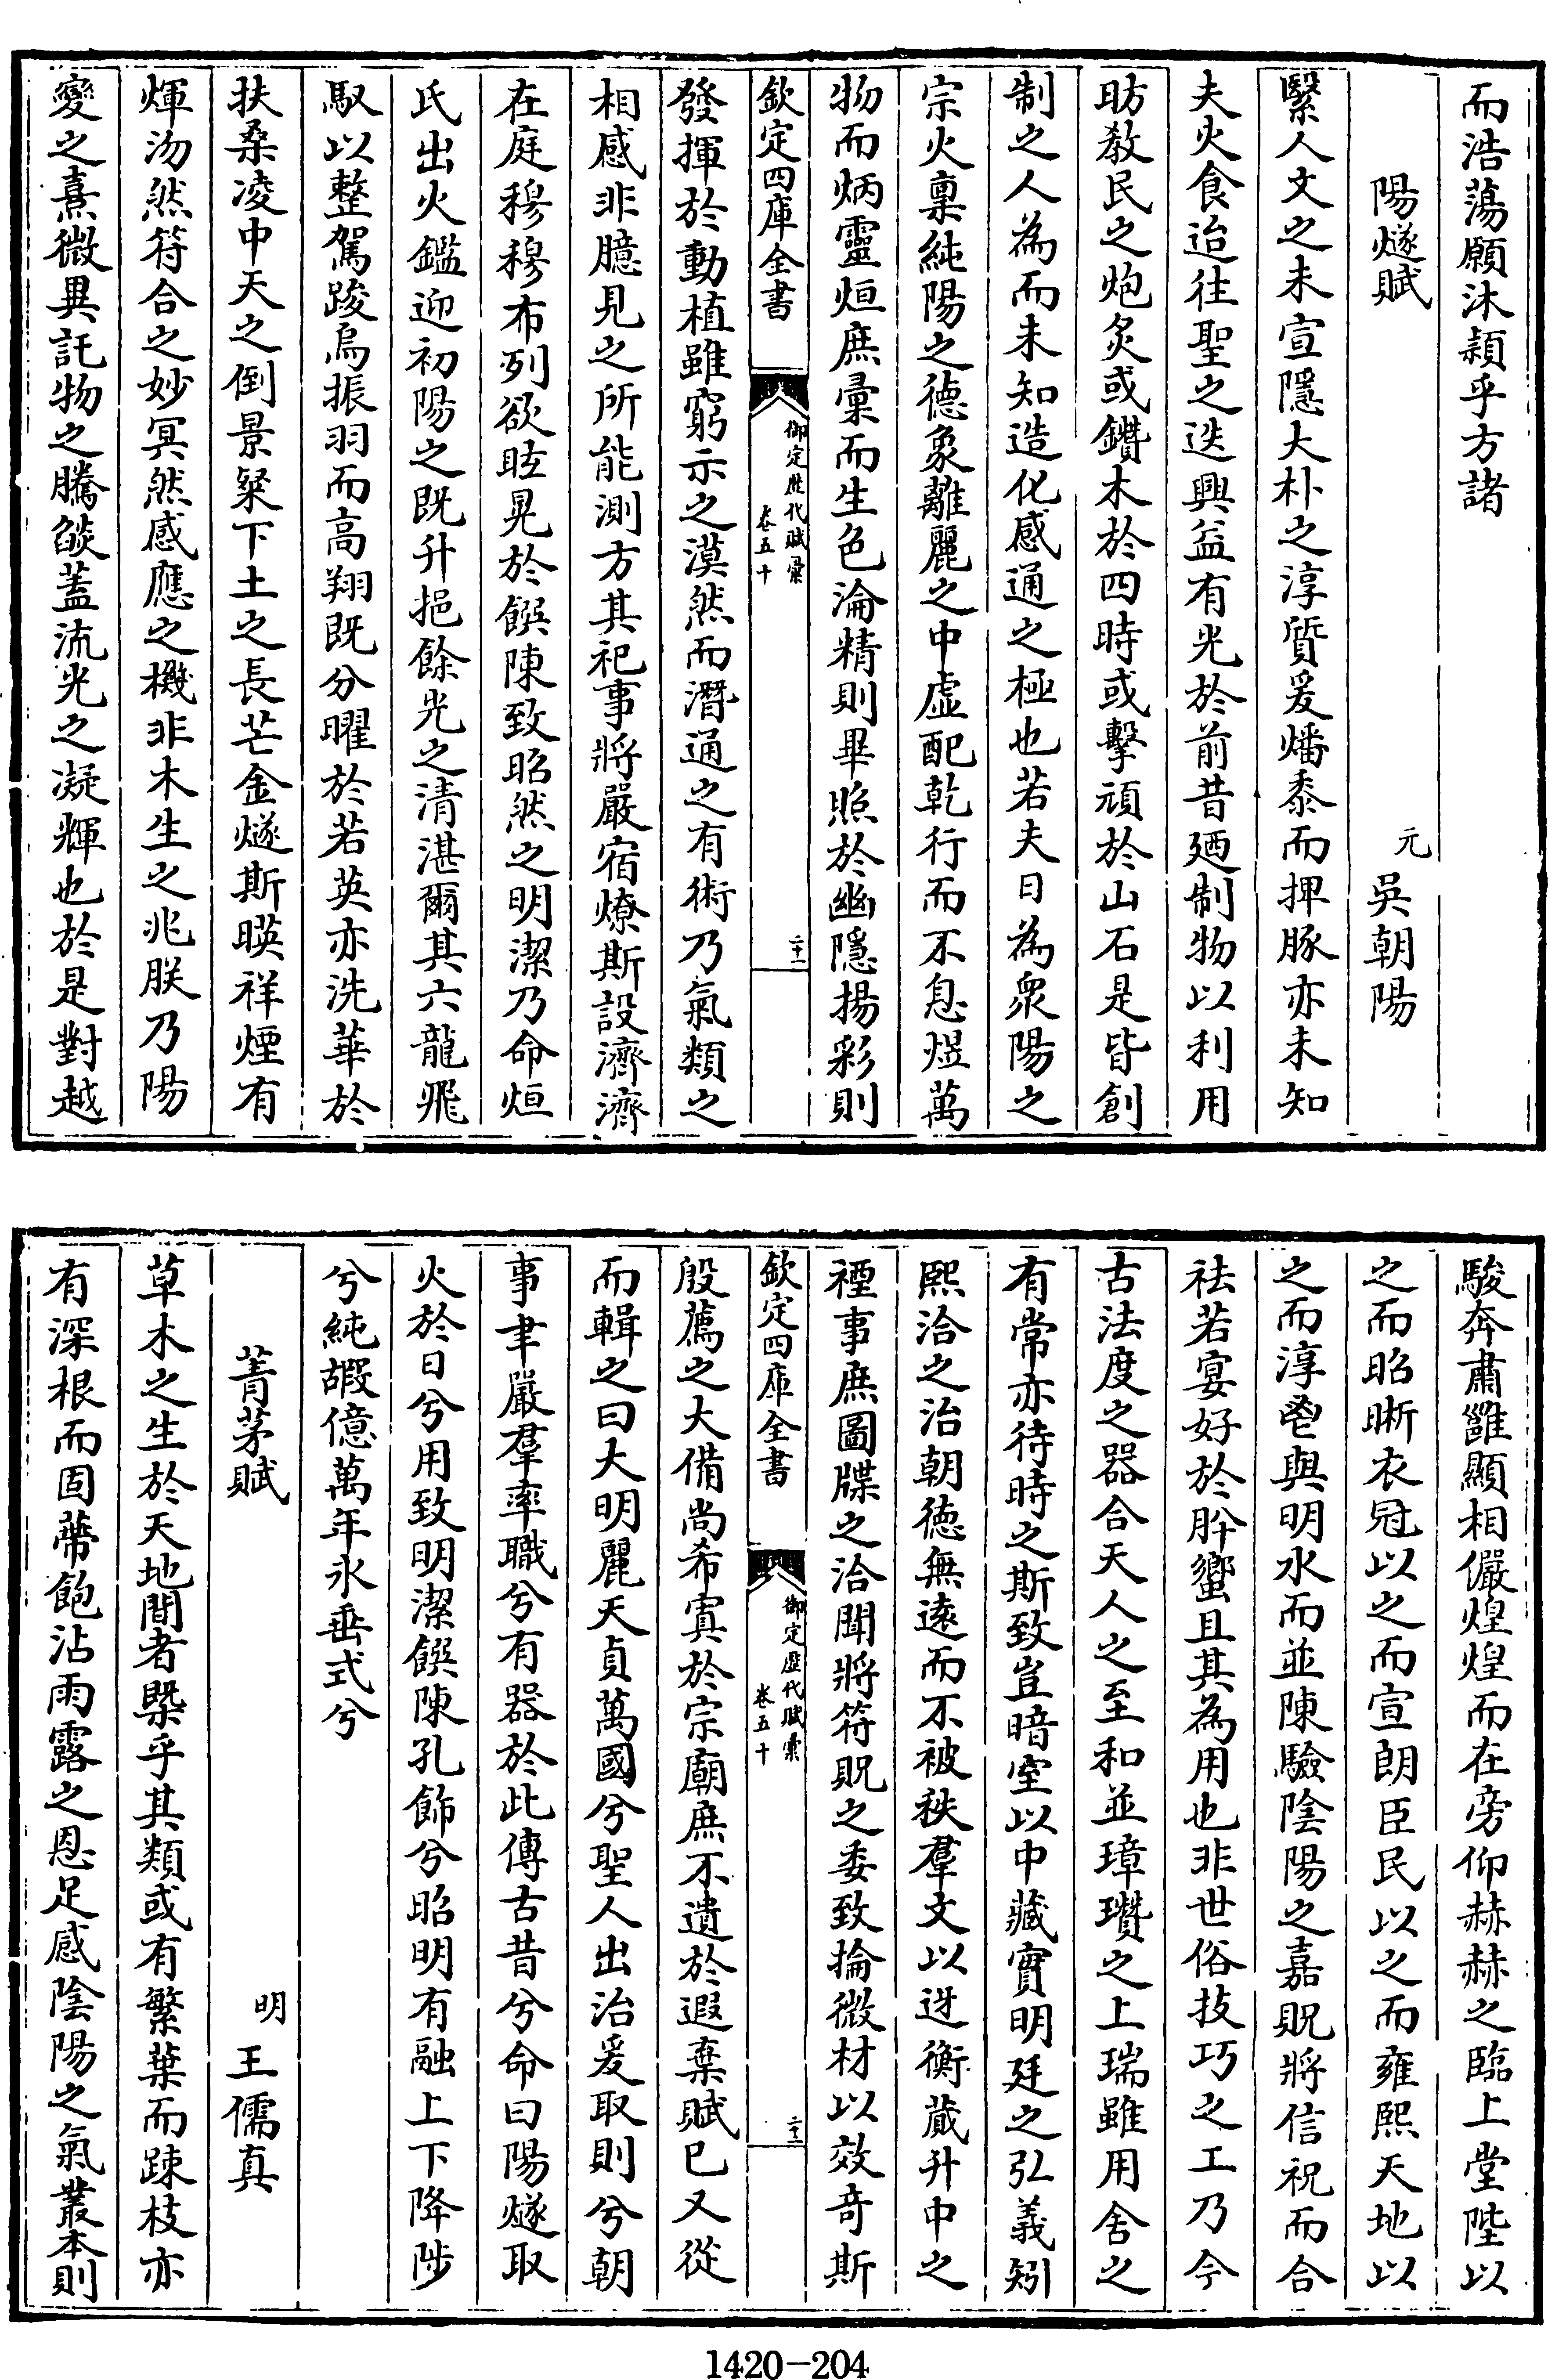 而浩蕩願沐潁乎方諸
陽燧賦
元 吳朝陽
繄人文之未宣隱大朴之淳質爰燔黍而捭豚亦未知
夫火食迨往聖之迭興益有光於前昔廼制物以利用
昉教民之炮炙或鑽木於四時或擊頑於山石是皆創
制之人為而未知造化感通之極也若夫日為衆陽之
宗火稟純陽之德象離麗之中虛配乾行而不息煜萬
物而炳靈烜庶彙而生色淪精則畢照於幽隱揚彩則
欽定四庫全書
御定歷代賦彙
卷五十
二十一
發揮於動植雖窮示之漠然而潛通之有術乃氣類之
相感非臆見之所能測方其祀事將嚴宿燎斯設濟濟
在庭穆穆布列欲昡晃於饌陳致昭然之明潔乃命烜
氏出火鑑迎初陽之既升挹餘光之清湛爾其六龍飛
馭以整駕踆烏振羽而高翔既分曜於若英亦洗華於
扶桑凌中天之倒景粲下土之長芒金燧斯暎祥煙有
煇沕然符合之妙冥然感應之機非木生之兆朕乃陽
變之熹微異託物之騰燄蓋流光之凝輝也於是對越
駿奔肅雝顯相儼煌煌而在旁仰赫赫之臨上堂陛以
之而昭晰衣冠以之而宣朗臣民以之而雍熙天地以
之而淳鬯與明水而並陳驗陰陽之嘉貺將信祝而合
祛若宴好於肸蠁且其為用也非世俗技巧之工乃今
古法度之器合天人之至和並璋瓚之上瑞雖用舍之
有常亦待時之斯致豈暗室以中藏實明廷之弘義矧
熙洽之治朝德無遠而不被秩羣文以迓衡蕆升中之
禋事庶圖牒之洽聞將符貺之委致掄微材以效奇斯
欽定四庫全書
御定歷代賦彙
卷五十
二十一
殷薦之大備尚希寘於宗廟庶不遺於遐棄賦已又從
而輯之曰大明麗天貞萬國兮聖人出治爰取則兮朝
事聿嚴羣率職兮有器於此傳古昔兮命曰陽燧取
火於日兮用致明潔饌陳孔飾兮昭明有融上下降陟
兮純嘏億萬年永垂式兮
菁茅賦
明 王儒真
草木之生於天地間者槩乎其類或有繁葉而踈枝亦
有深根而固蔕飽沾雨露之恩足感陰陽之氣叢本則
1420-204